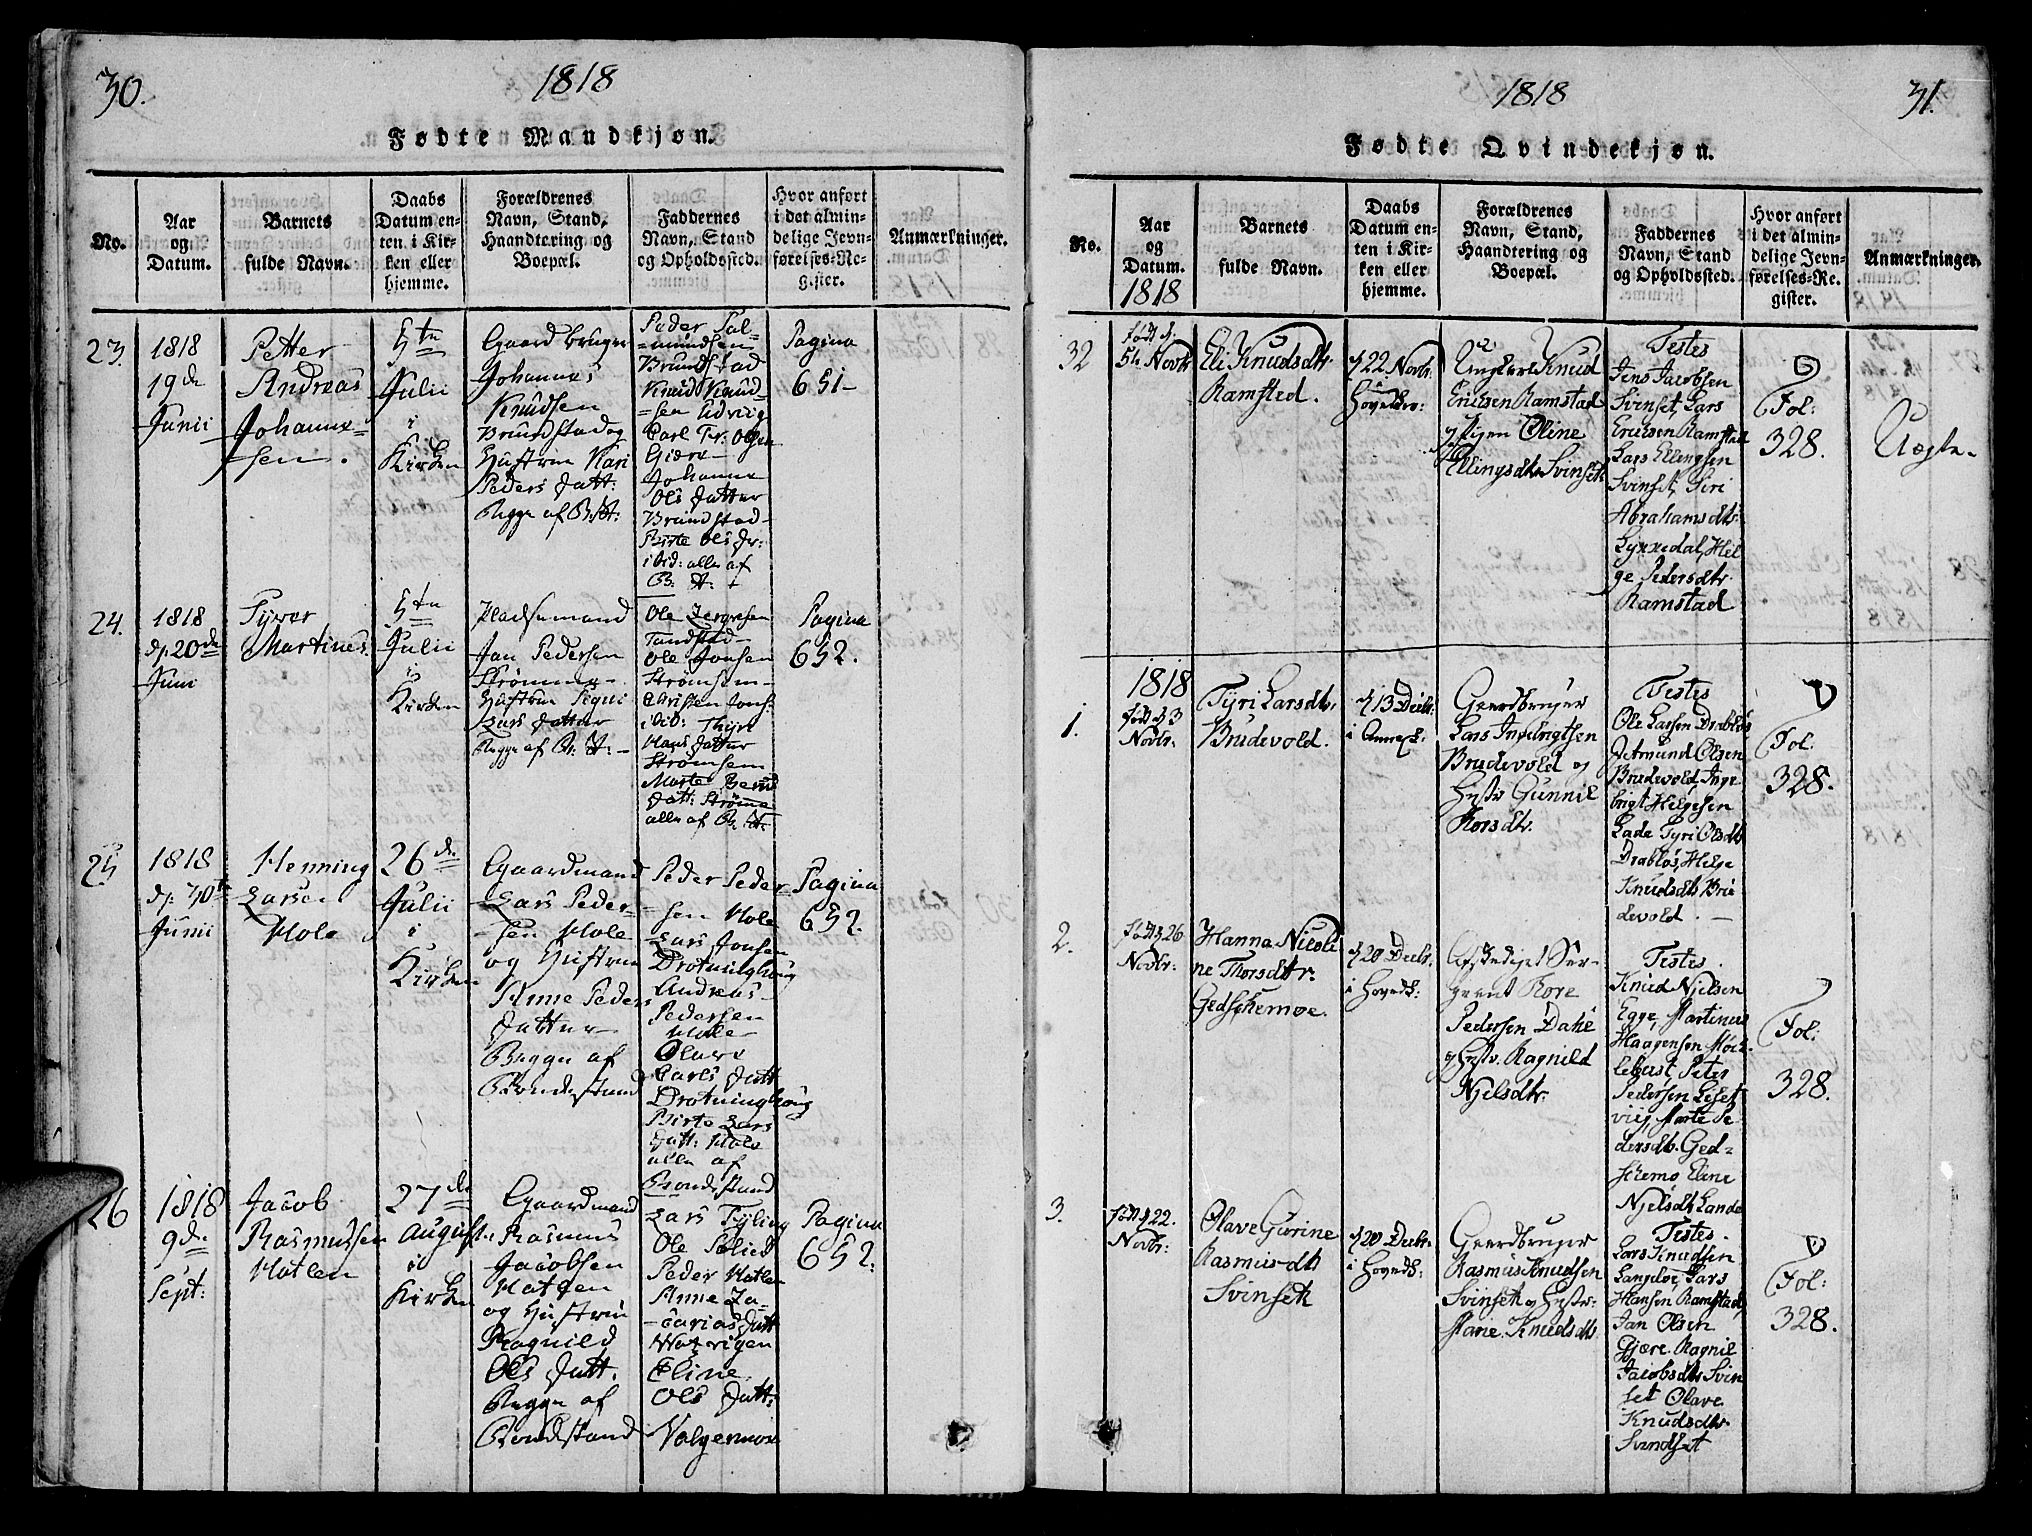 30.
1818
Fødte Mandkjøn.
No.
Aar
og
Datum.
Barnets
fulde Navn.
Daabs
Datum en-
ten i Kir-
ken eller
hjemme.
Forældrenes
Navn, Stand,
Haandtering og
Boepæl.
Faddernes
Navn, Stand
og Opholdssted.
Hvor anført
i det almin-
delige Jevn-
førelses-Re-
gister.
Anmærkninger.
23.
1818
19de
Junii
Petter
Andreas
Johanne-
-sen.
5te
Julii
i
Kirken
Gaardbruger
Johannes
Knudsen
Brundstad og
Hustrue Kari
Peders Datt:
Begge af B:St:
Peder Sal-
-mundsen
Brundstad
Knud Knud-
-sen Udviig
Carl Fr: Olsen
Giære
Johanne
Ols Datter
Brundstad-
Birte Ols Dr:
ibid: alle af
B: St:
Pagina
651-
24.
1818
d: 20de
Juni
Syver
Martinus.
5te
Julii
i
Kirken
Pladsemand
Jan Pedersen
Strømme
Hustrue Sigui
Lars Datter
Begge af B: St:
Ole
Tandstad-
Ole Jonsen
Strømsem-
Christen Jons:
ibid: Thyri
Hans Datter
Strømsem
Marte Bernd
Datt: Strømme
alle af B: St:
Pagina
652.
25
1818
d: 30te
Junii
Henning
Larsen
Hole
26de
Julii
i
Kirken
Gaardmand
Lars Peder-
-sen Hole
og Hustrue
Anne Peders
Datter
Begge af
Bondestand
Peder Peder-
-sen Hole
Lars Jonsen
Drotninghoug
Andreas
Pedersen
Hole
Olave
Carls Datt
Drotninghoug
Birte Lars
Datt: Hole
alle af
Bondestand
Pagina
652.
26
1818
9de
Sept:
Jacob
Rasmussen
Hatlen
27de
August:
i
Kirken
Gaardmand
Rasmus
Jacobsen
Hatlen
og Hustrue
Ragnild
Ols Datt:
Begge af
Bondestand
Lars Tyling
Ole Solied
Peder Hatlen
Anne Za-
-carias Datt
Eline
Ols Datt:
Valgermoe
Pagina
652:
1818
31.
Fødte Qvindekjøn.
No.
Aar
og
Datum.
1818
Barnets
fulde Navn.
Daabs
Datum en-
ten i Kir-
ken eller
hjemme.
Forældrenes
Navn, Stand,
Haandtering og
Boepæl.
Faddernes
Navn, Stand
og Opholdssted.
Hvor anført
i det almin-
delige Jevn-
førelses-Re-
gister.
Anmærkninger.
32
født d.
5te Novbr
Eli Knudsdtr.
Ramsted.
d 22 Novbr:
Hovedk:
Ungkarl Knud
Ericksen Ramstad
og Pigen Oline
Ellingsdtr Svinset
Testes
Jens Jacobsen
Svinset, Lars
Ericksen Ramstad
Lars Ellingsen
Svinset, Siri
Abrahamsdtr:
Lyxxedal, Hel
ge Pedersdtr.
Ramstad
Fol:
328.
Uægte.
1.
1818
født d 3
Novbr:
Tyri Larsdtr.
Brudevold.
d 13 Decbr:
i Annexk:
Gaardbruger
Lars Ingebrigtsen
Brudevold og
Hustr Gunnil
Korsdtr.
Testes
Ole Larsen Drabløs
Jetmund Olsen
Brudevold, Inge
brigt Helgesen
Lade Tyri Olsdtr
Drabløs, Helge
Knudsdtr Bru
devold.
Fol:
328.
2.
født d 26
Novbr:
Hanna Nicoli
ne Thorsdtr.
Gedschemoe.
d 20 Decbr.
i Hovedk:
Afskediget Ser-
geant Tore
Pedersen Dahl
og Hustr. Ragnild
Njelsdtr.
Testes.
Knud Njelsen
Egge, Martinus
Haagensen Møck-
lebust, Peter
Pedersen Liset
vieg, Marte Pe
dersdtr. Ged-
schemo Eline
Njelsdtr Lande
Fol:
328.
3.
født d 22.
Novbr:
Olave Gurine
Rasmusdtr
Svinset
d 20 Decbr.
i Hovedk:
Gaardbruger
Rasmus Knudsen
Svinset og Hustr:
Marie Knudsdtr.
Testes.
Lars Knudsen
Langeløe, Lars
Hansen Ramstad,
Jan Olsen
Gjære. Ragnil
Jacobsdtr Svin
set Olave
Knudsdtr.
Svindset
Fol:
328.